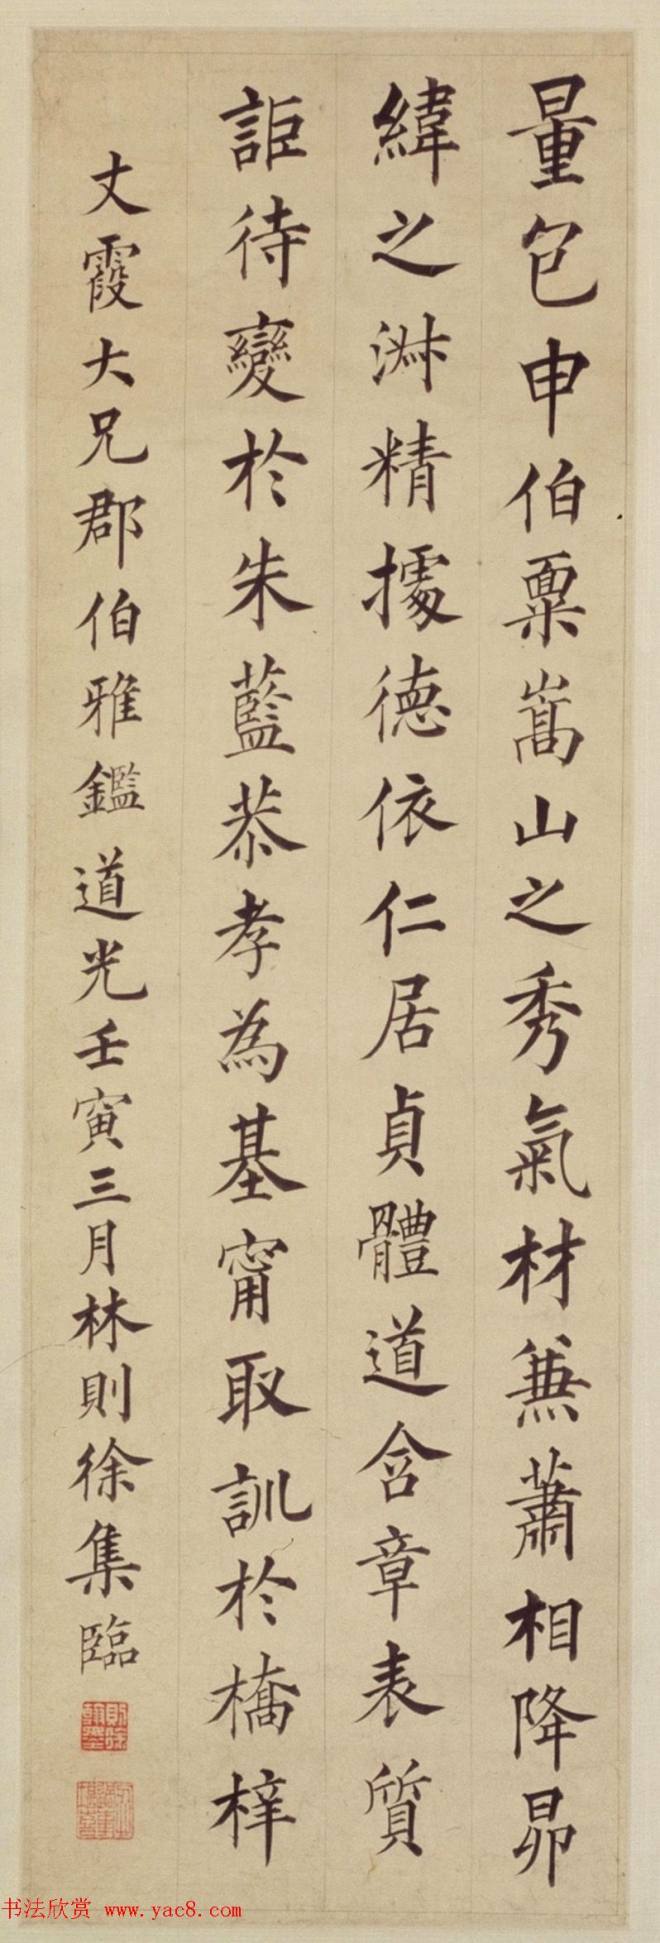 量包申伯禀嵩山之秀氣材兼蕭相降昴
緯之淋精據德依仁居貞體道含章表質
詎待變於朱藍恭孝為基甯取訓於橋梓
丈霞大兄郡伯雅鑑道光壬寅三月林則徐集臨
书法欣赏 www.yac8.com